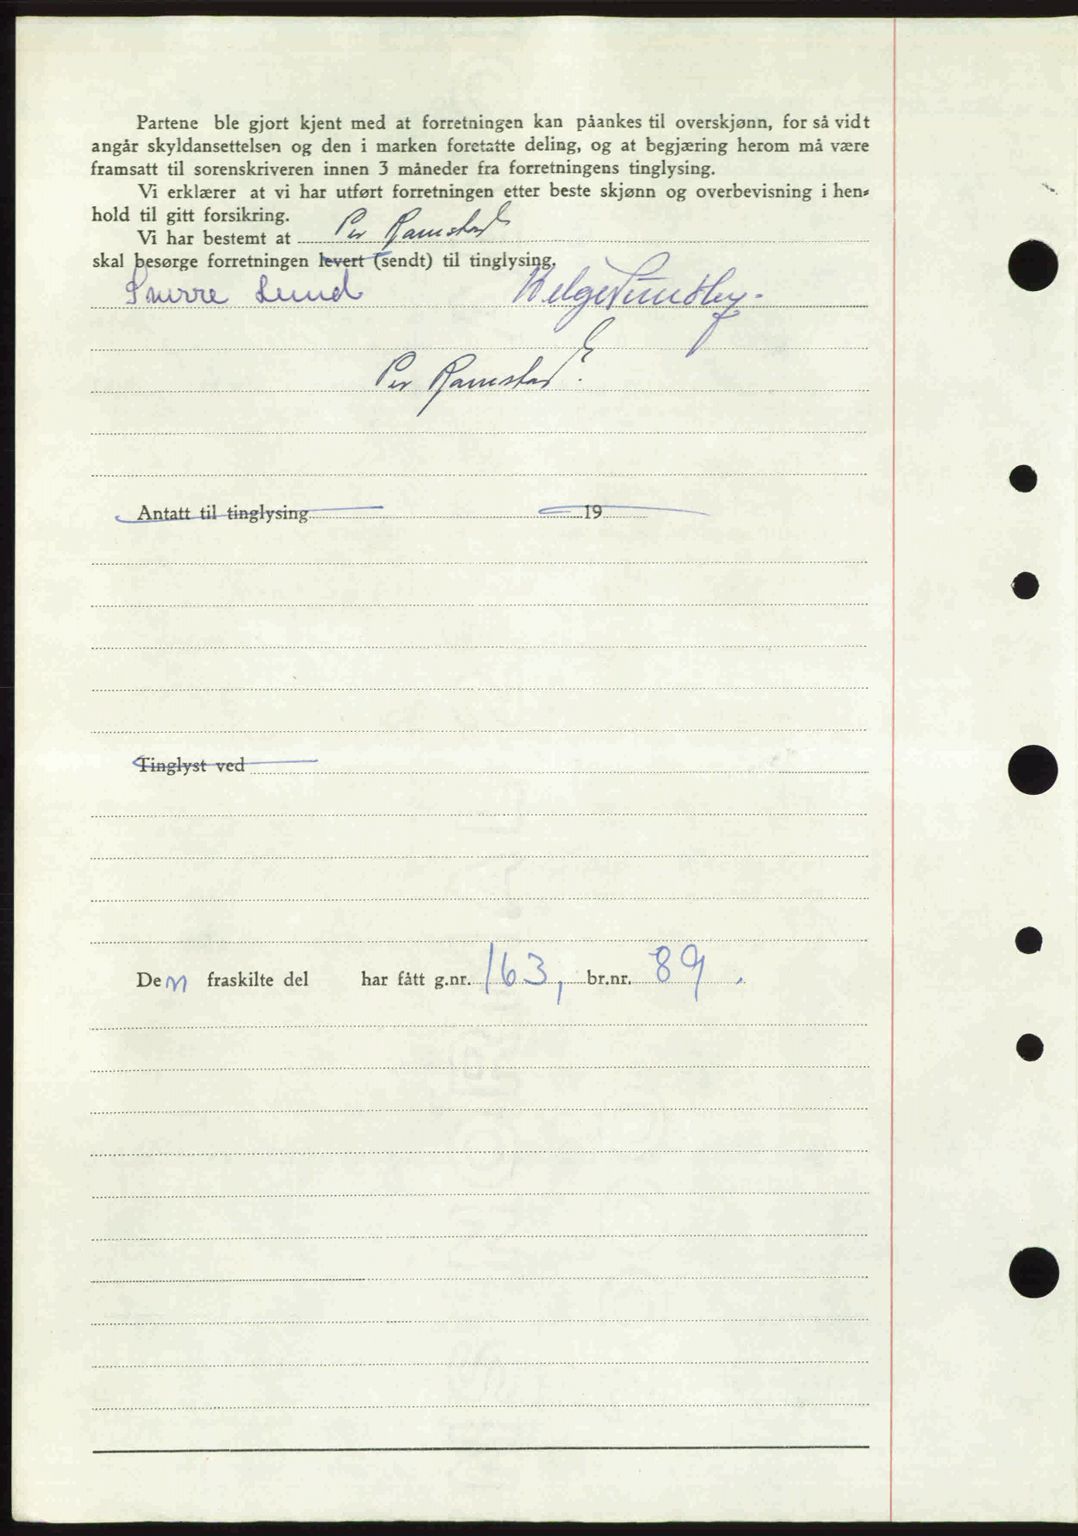 Partene ble gjort kjent med at forretningen kan påankes til overskjønn, for så vidt
angår skyldansettelsen og den i marken foretatte deling, og at begjæring herom må være
framsatt til sorenskriveren innen 3 måneder fra forretningens tinglysing.
Vi erklærer at vi har utført forretningen etter beste skjønn og overbevisning i hen-
hold til gitt forsikring.
Vi har bestemt at Per Ramstad
skal besørge forretningen levert (sendt) til tinglysing.
Snorre Lund Helge Sundby.
Per Ramstad.
Antatt til tinglysing 19
Tinglyst ved
Den fraskilte del har fått g.nr. 163, br.nr. 89.